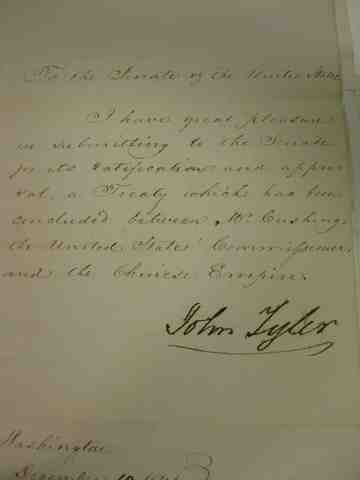 To the Senate of the United States
I have great pleasure
in submitting to the Senate
for its ratification and appro-
val, a Treaty which has been
concluded between Mr. Cushing
the United States' Commissioner,
and the Chinese Empire.
John Tyler
Washington
December 10